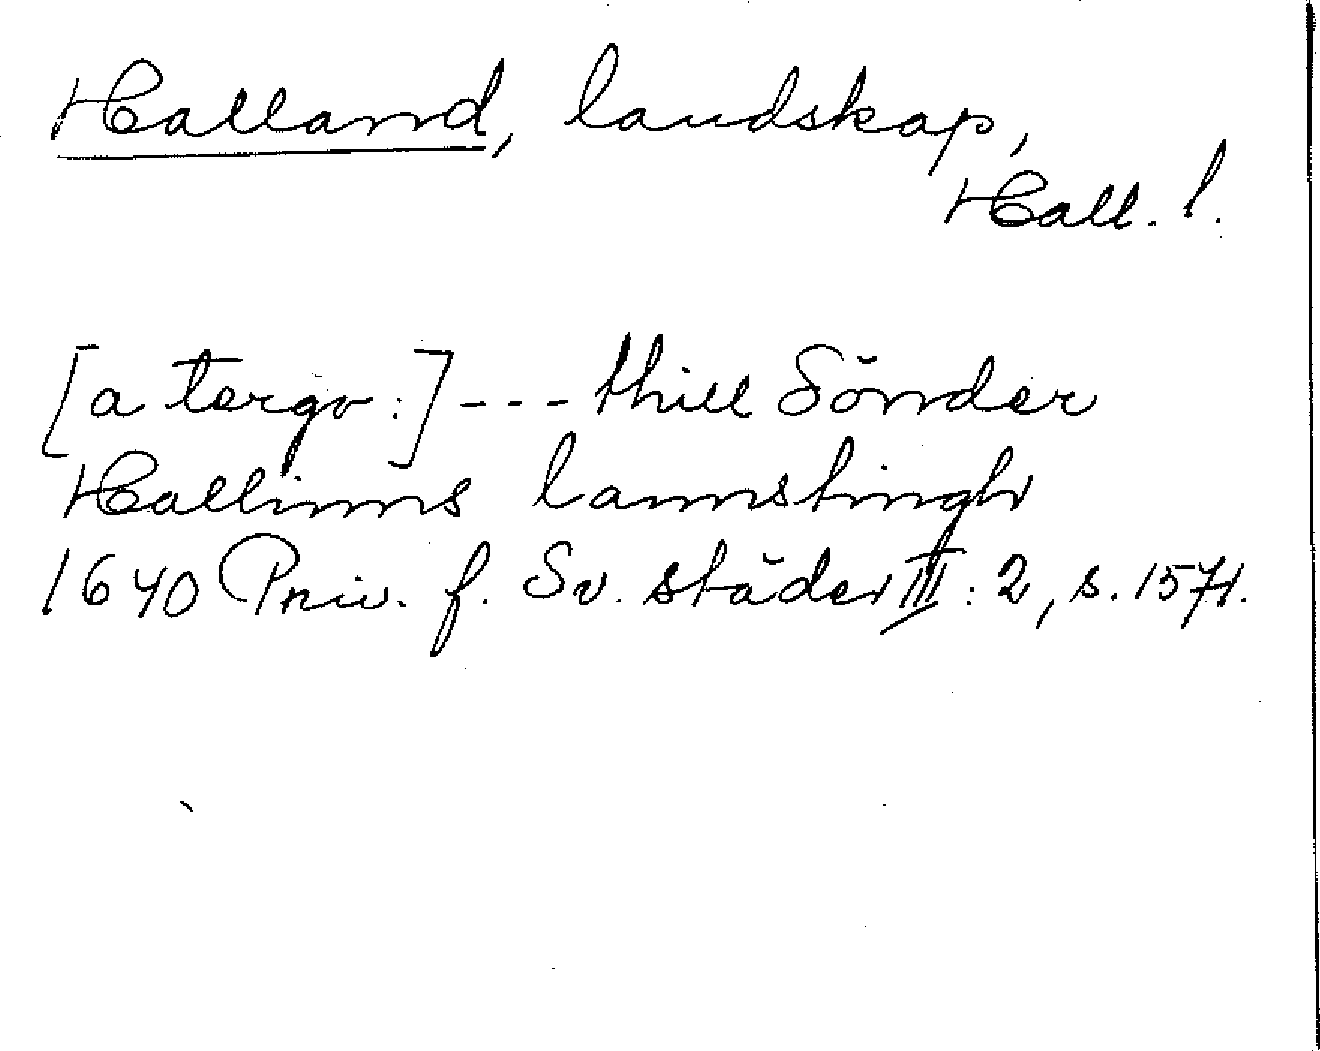 Halland, landskap,
Hall. l.
[a tergo:] --- thill Sönder
Hallinns lannstingh
1640 Priv. f. Sv. städer III: 2, s. 1571.